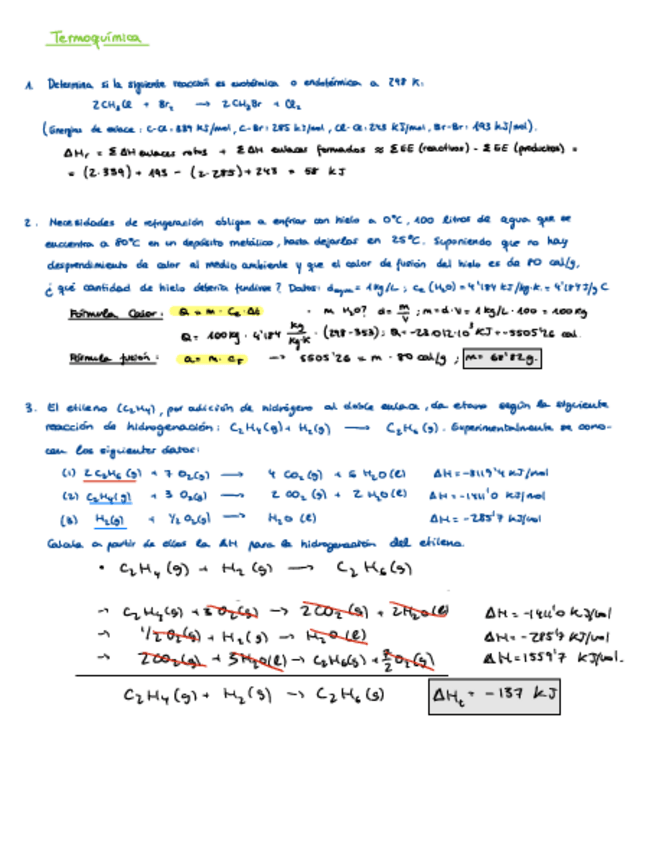 Termoquímica
1. Determina si la siguiente reacción es exotérmica o endotérmica a 298 K:
2 CH₃Cl + Br₂ → 2 CH₃Br + Cl₂
(Energías de enlace: C-Cl: 339 KJ/mol, C-Br: 285 KJ/mol, Cl-Cl: 243 KJ/mol, Br-Br: 193 KJ/mol).
ΔHr = Σ ΔH enlaces rotos + Σ ΔH enlaces formados ≈ Σ EE (reactivos) - Σ EE (productos) =
= (2·339) + 193 - (2·285) + 243 = 58 KJ
2. Necesidades de refrigeración obligan a enfriar con hielo a 0°C, 100 litros de agua que se
encuentra a 80°C en un depósito metálico, hasta dejarlos en 25°C. Suponiendo que no hay
desprendimiento de calor al medio ambiente y que el calor de fusión del hielo es de 80 cal/g,
¿qué cantidad de hielo debería fundirse? Datos: dagua = 1 Kg/L; ce (H₂O) = 4'184 KJ/kg·K = 4'184 J/g C
Fórmula Calor: Q = m · Ce · Δt · m H₂O? d = m/V ; m = d·V = 1 kg/L · 100 = 100 Kg
Q = 100 Kg · 4'184 kg/Kg·K · (298-353); Q = -23.012·10³ KJ = -5505'26 cal.
Fórmula fusión: Q = m · CF → 5505'26 = m · 80 cal/g ; m = 68'82g.
3. El etileno (C₂H₄), por adición de hidrógeno al doble enlace, da etano según la siguiente
reacción de hidrogenación: C₂H₄(g) + H₂(g) → C₂H₆(g). Experimentalmente se cono-
cen los siguientes datos:
(1) 2 C₂H₆(g) + 7 O₂(g) → 4 CO₂(g) + 6 H₂O(l) ΔH = -3119'4 KJ/mol
(2) C₂H₄(g) + 3 O₂(g) → 2 CO₂(g) + 2 H₂O(l) ΔH = -1411'0 KJ/mol
(3) H₂(g) + 1/2 O₂(g) → H₂O (l) ΔH = -285'7 KJ/mol
Calcula a partir de ellos la ΔH para la hidrogenación del etileno.
· C₂H₄(g) + H₂(g) → C₂H₆(g)
→ C₂H₄(g) + 3 O₂(g) → 2 CO₂(g) + 2 H₂O(l) ΔH = -1411'0 KJ/mol
→ 1/2 O₂(g) + H₂(g) → H₂O(l) ΔH = -285'7 KJ/mol
→ 2 CO₂(g) + 3 H₂O(l) → C₂H₆(g) + 7/2 O₂(g) ΔH = 1559'7 KJ/mol.
C₂H₄(g) + H₂(g) → C₂H₆(g) ΔHt = -137 KJ